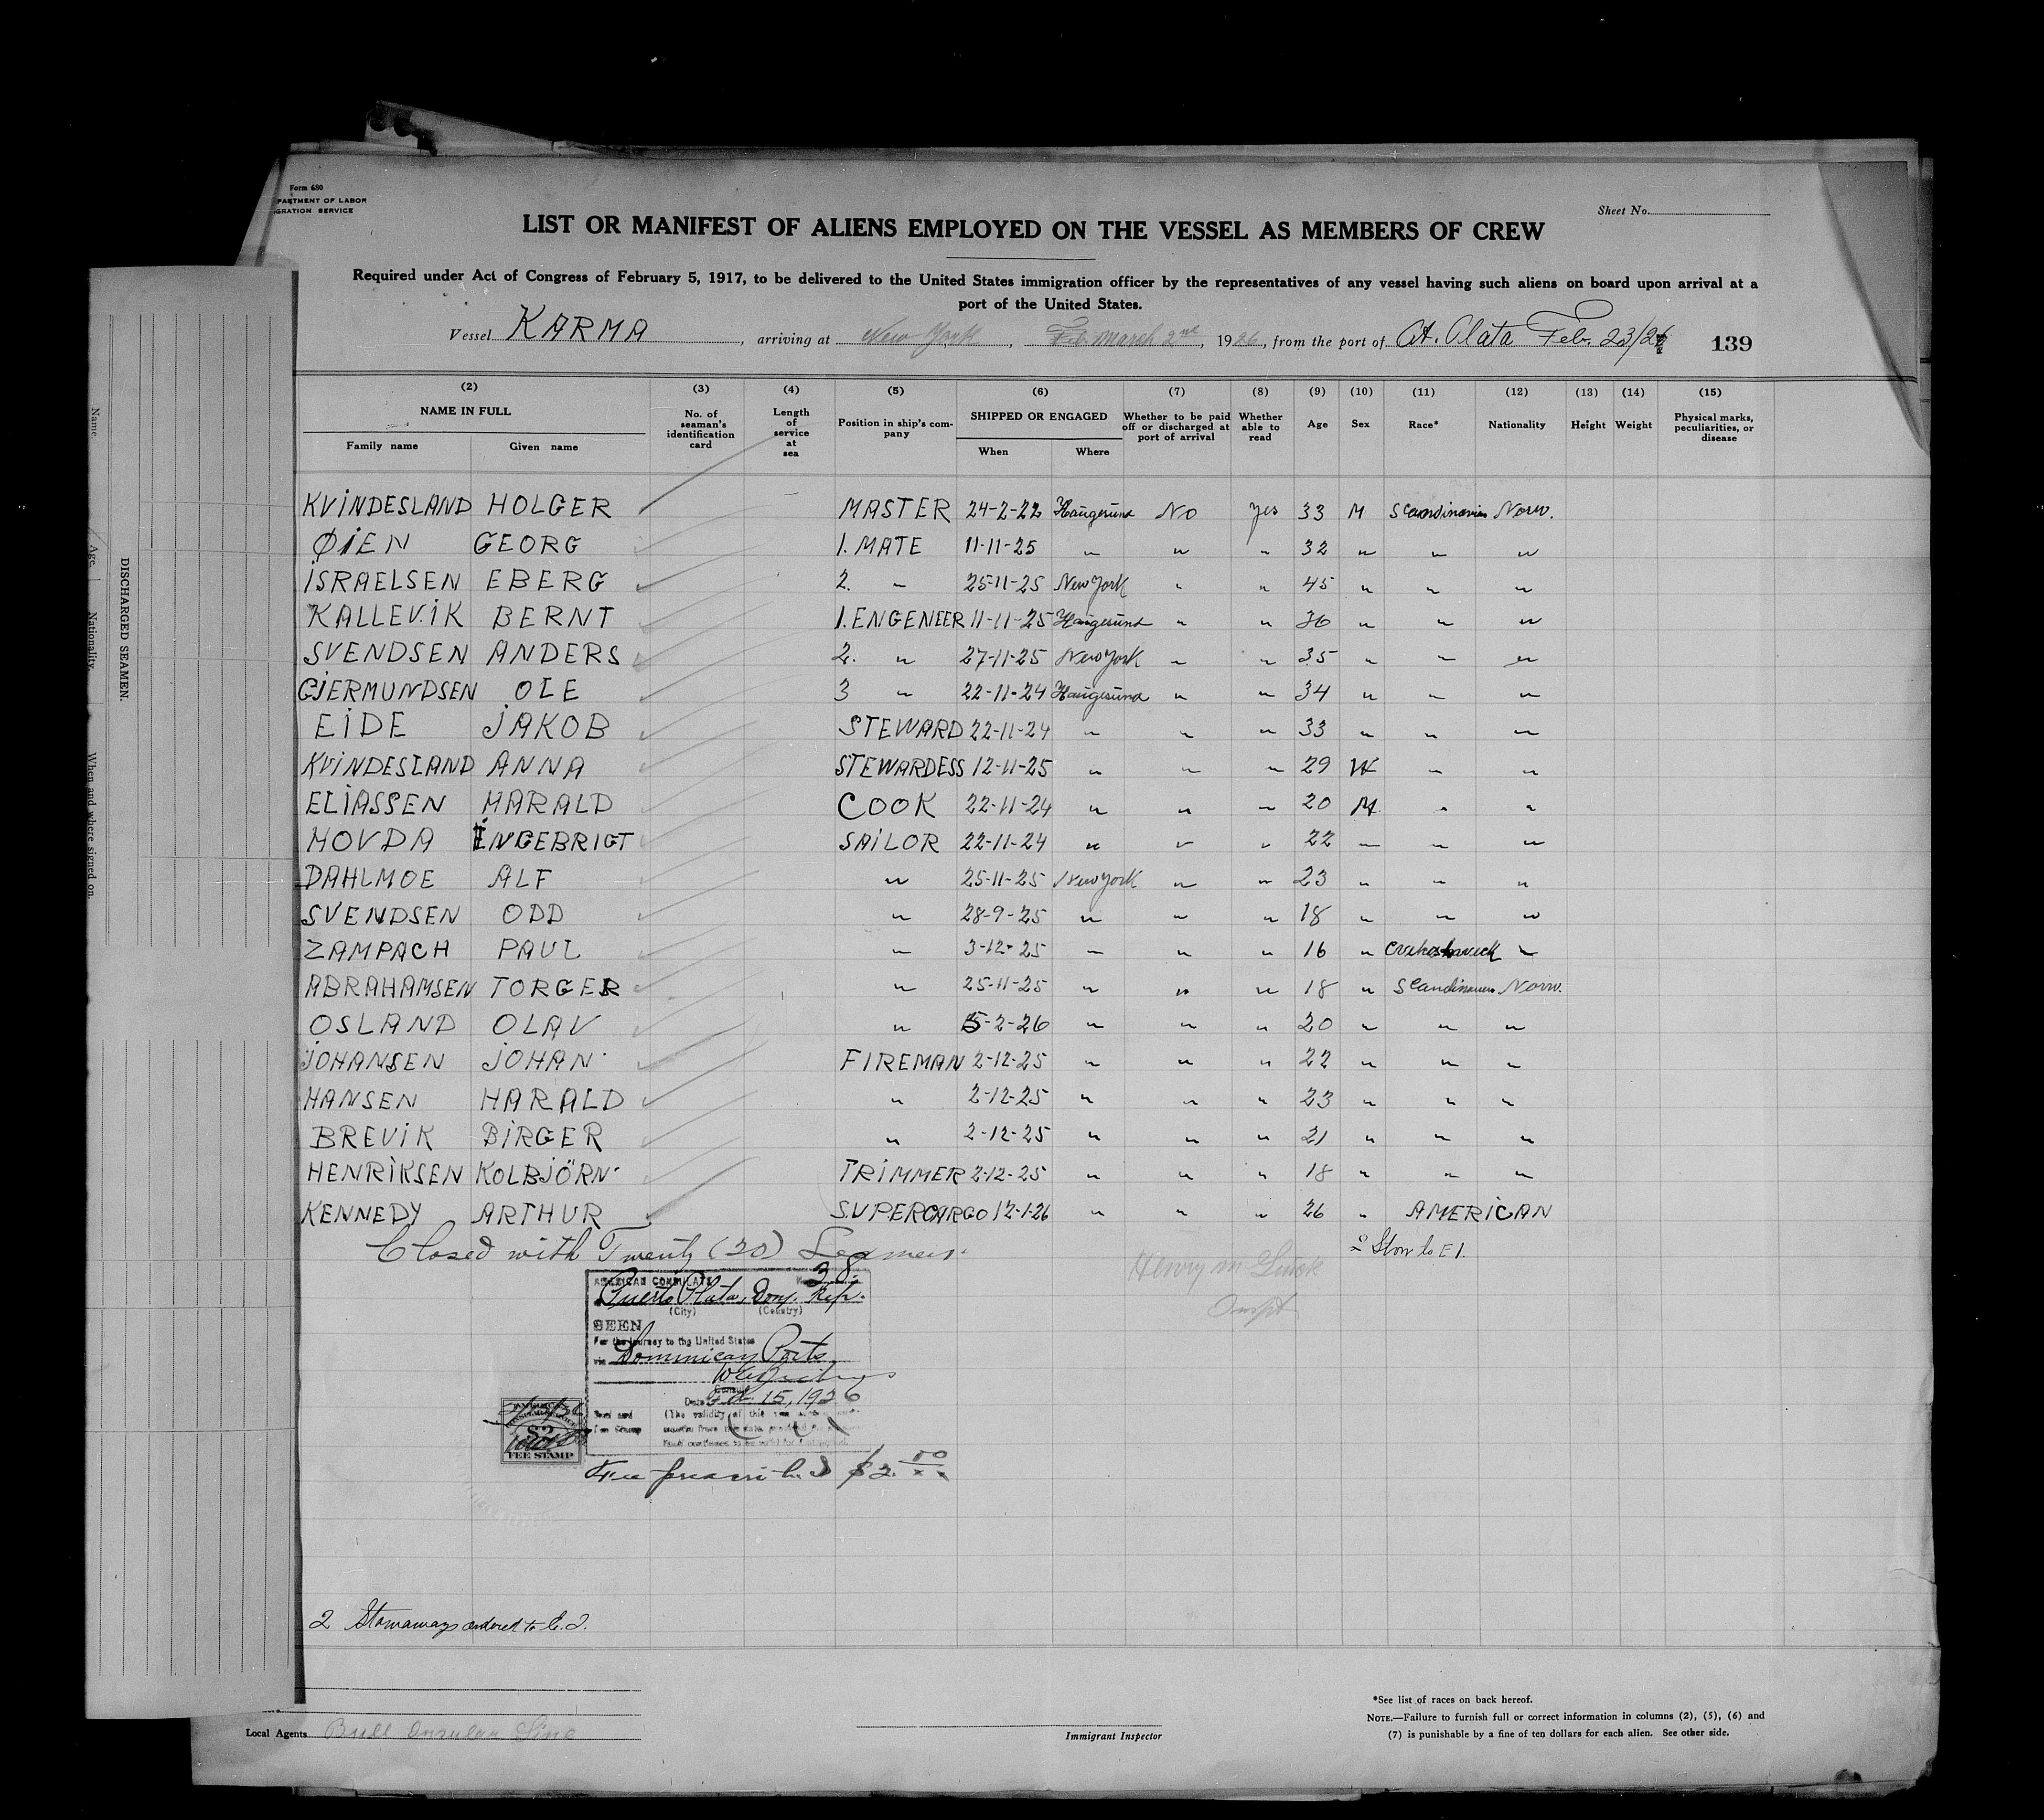 Form 680
PARTMENT OF LABOR
GRATION SERVICE
Sheet No.
LIST OR MANIFEST OF ALIENS EMPLOYED ON THE VESSEL AS MEMBERS OF CREW
Required under Act of Congress of February 5, 1917, to be delivered to the United States immigration officer by the representatives of any vessel having such aliens on board upon arrival at a
port of the United States.
Vessel KARMA, arriving at New York, Feb. March 2nd, 1926, from the port of Pt. Plata Feb. 23/26 139
(2) (3) (4) (5) (6) (7) (8) (9) (10) (11) (12) (13) (14) (15)
NAME IN FULL
Family name Given name
No. of seaman's identification card
Length of service at sea
Position in ship's company
SHIPPED OR ENGAGED
When Where
Whether to be paid off or discharged at port of arrival
Whether able to read
Age Sex Race* Nationality Height Weight
Physical marks, peculiarities, or disease
KVINDESLAND HOLGER MASTER 24-2-22 Haugesund No Yes 33 M Scandinavian Norw.
ØIEN GEORG 1. MATE 11-11-25 " " " 32 " " "
ISRAELSEN EBERG 2. " 25-11-25 New York " " 45 " " "
KALLEVIK BERNT 1. ENGENEER 11-11-25 Haugesund " " 36 " " "
SVENDSEN ANDERS 2. " 27-11-25 New York " " 35 " " "
GJERMUNDSEN OLE 3 " 22-11-24 Haugesund " " 34 " " "
EIDE JAKOB STEWARD 22-11-24 " " " 33 " " "
KVINDESLAND ANNA STEWARDESS 12-11-25 " " " 29 W " "
ELIASSEN HARALD COOK 22-11-24 " " " 20 M " "
HOVDA INGEBRIGT SAILOR 22-11-24 " " " 22 " " "
DAHLMOE ALF " 25-11-25 New York " " 23 " " "
SVENDSEN ODD " 28-9-25 " " " 18 " " "
ZAMPACH PAUL " 3-12-25 " " " 16 " "
ABRAHAMSEN TORGER " 25-11-25 " " " 18 " Scandinavian Norw.
OSLAND OLAV " 5-2-26 " " " 20 " " "
JOHANSEN JOHAN FIREMAN 2-12-25 " " " 22 " " "
HANSEN HARALD " 2-12-25 " " " 23 " " "
BREVIK BIRGER " 2-12-25 " " " 21 " " "
HENRIKSEN KOLBJÖRN TRIMMER 2-12-25 " " " 18 " " "
KENNEDY ARTHUR SUPERCARGO 12-1-26 " " " 26 " AMERICAN
Closed with Twenty (20) Seamen.
2 Stow to E I.
AMERICAN CONSULATE No. 38.
Puerto Plata, Dom. Rep.
(City) (Country)
SEEN
For the journey to the United States
via Dominican Ports
Consul
Date Feb. 15, 1926
(The validity of this
$2
FEE STAMP
Fee prescribed $2.00
2 Stowaways ordered to E. I.
Local Agents Bull Insular Line
Immigrant Inspector
*See list of races on back hereof.
NOTE.—Failure to furnish full or correct information in columns (2), (5), (6) and
(7) is punishable by a fine of ten dollars for each alien. See other side.
DISCHARGED SEAMEN.
Name
Age.
Nationality.
When and where signed on.